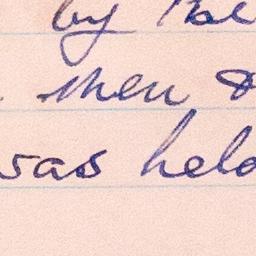 by
then &
was held